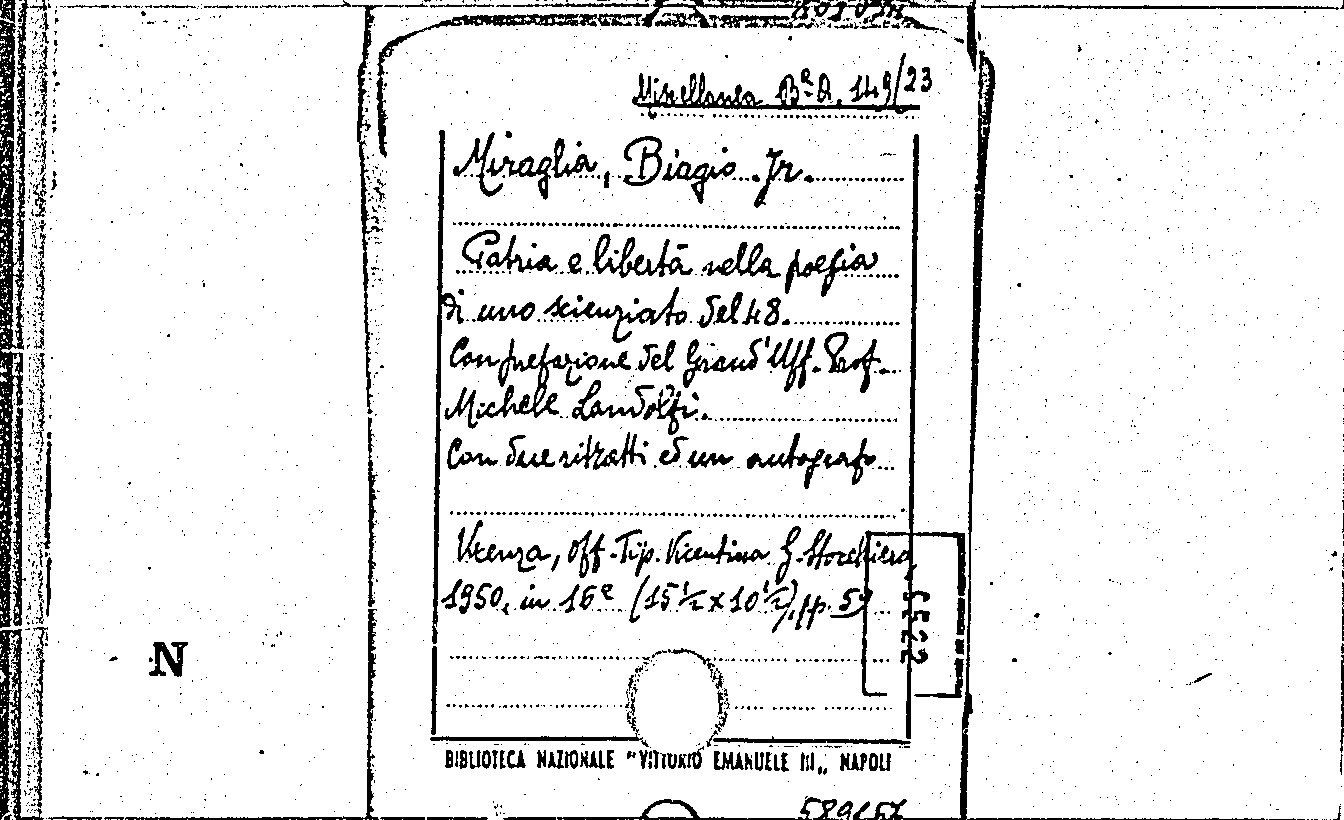 Miscellanea Bª Q. 149/23
Miraglia, Biagio Jr.
Patria e libertà nella poesia
di uno scienziato del 48.
Con prefazione del Grand'Uff. Prof.
Michele Landolfi.
Con due ritratti ed un autografo
Vicenza, Off. Tip. Vicentina G. Stocchiero,
1950, in 16º (15½ x 10½), pp. 59
N
BIBLIOTECA NAZIONALE "VITTORIO EMANUELE III„ NAPOLI